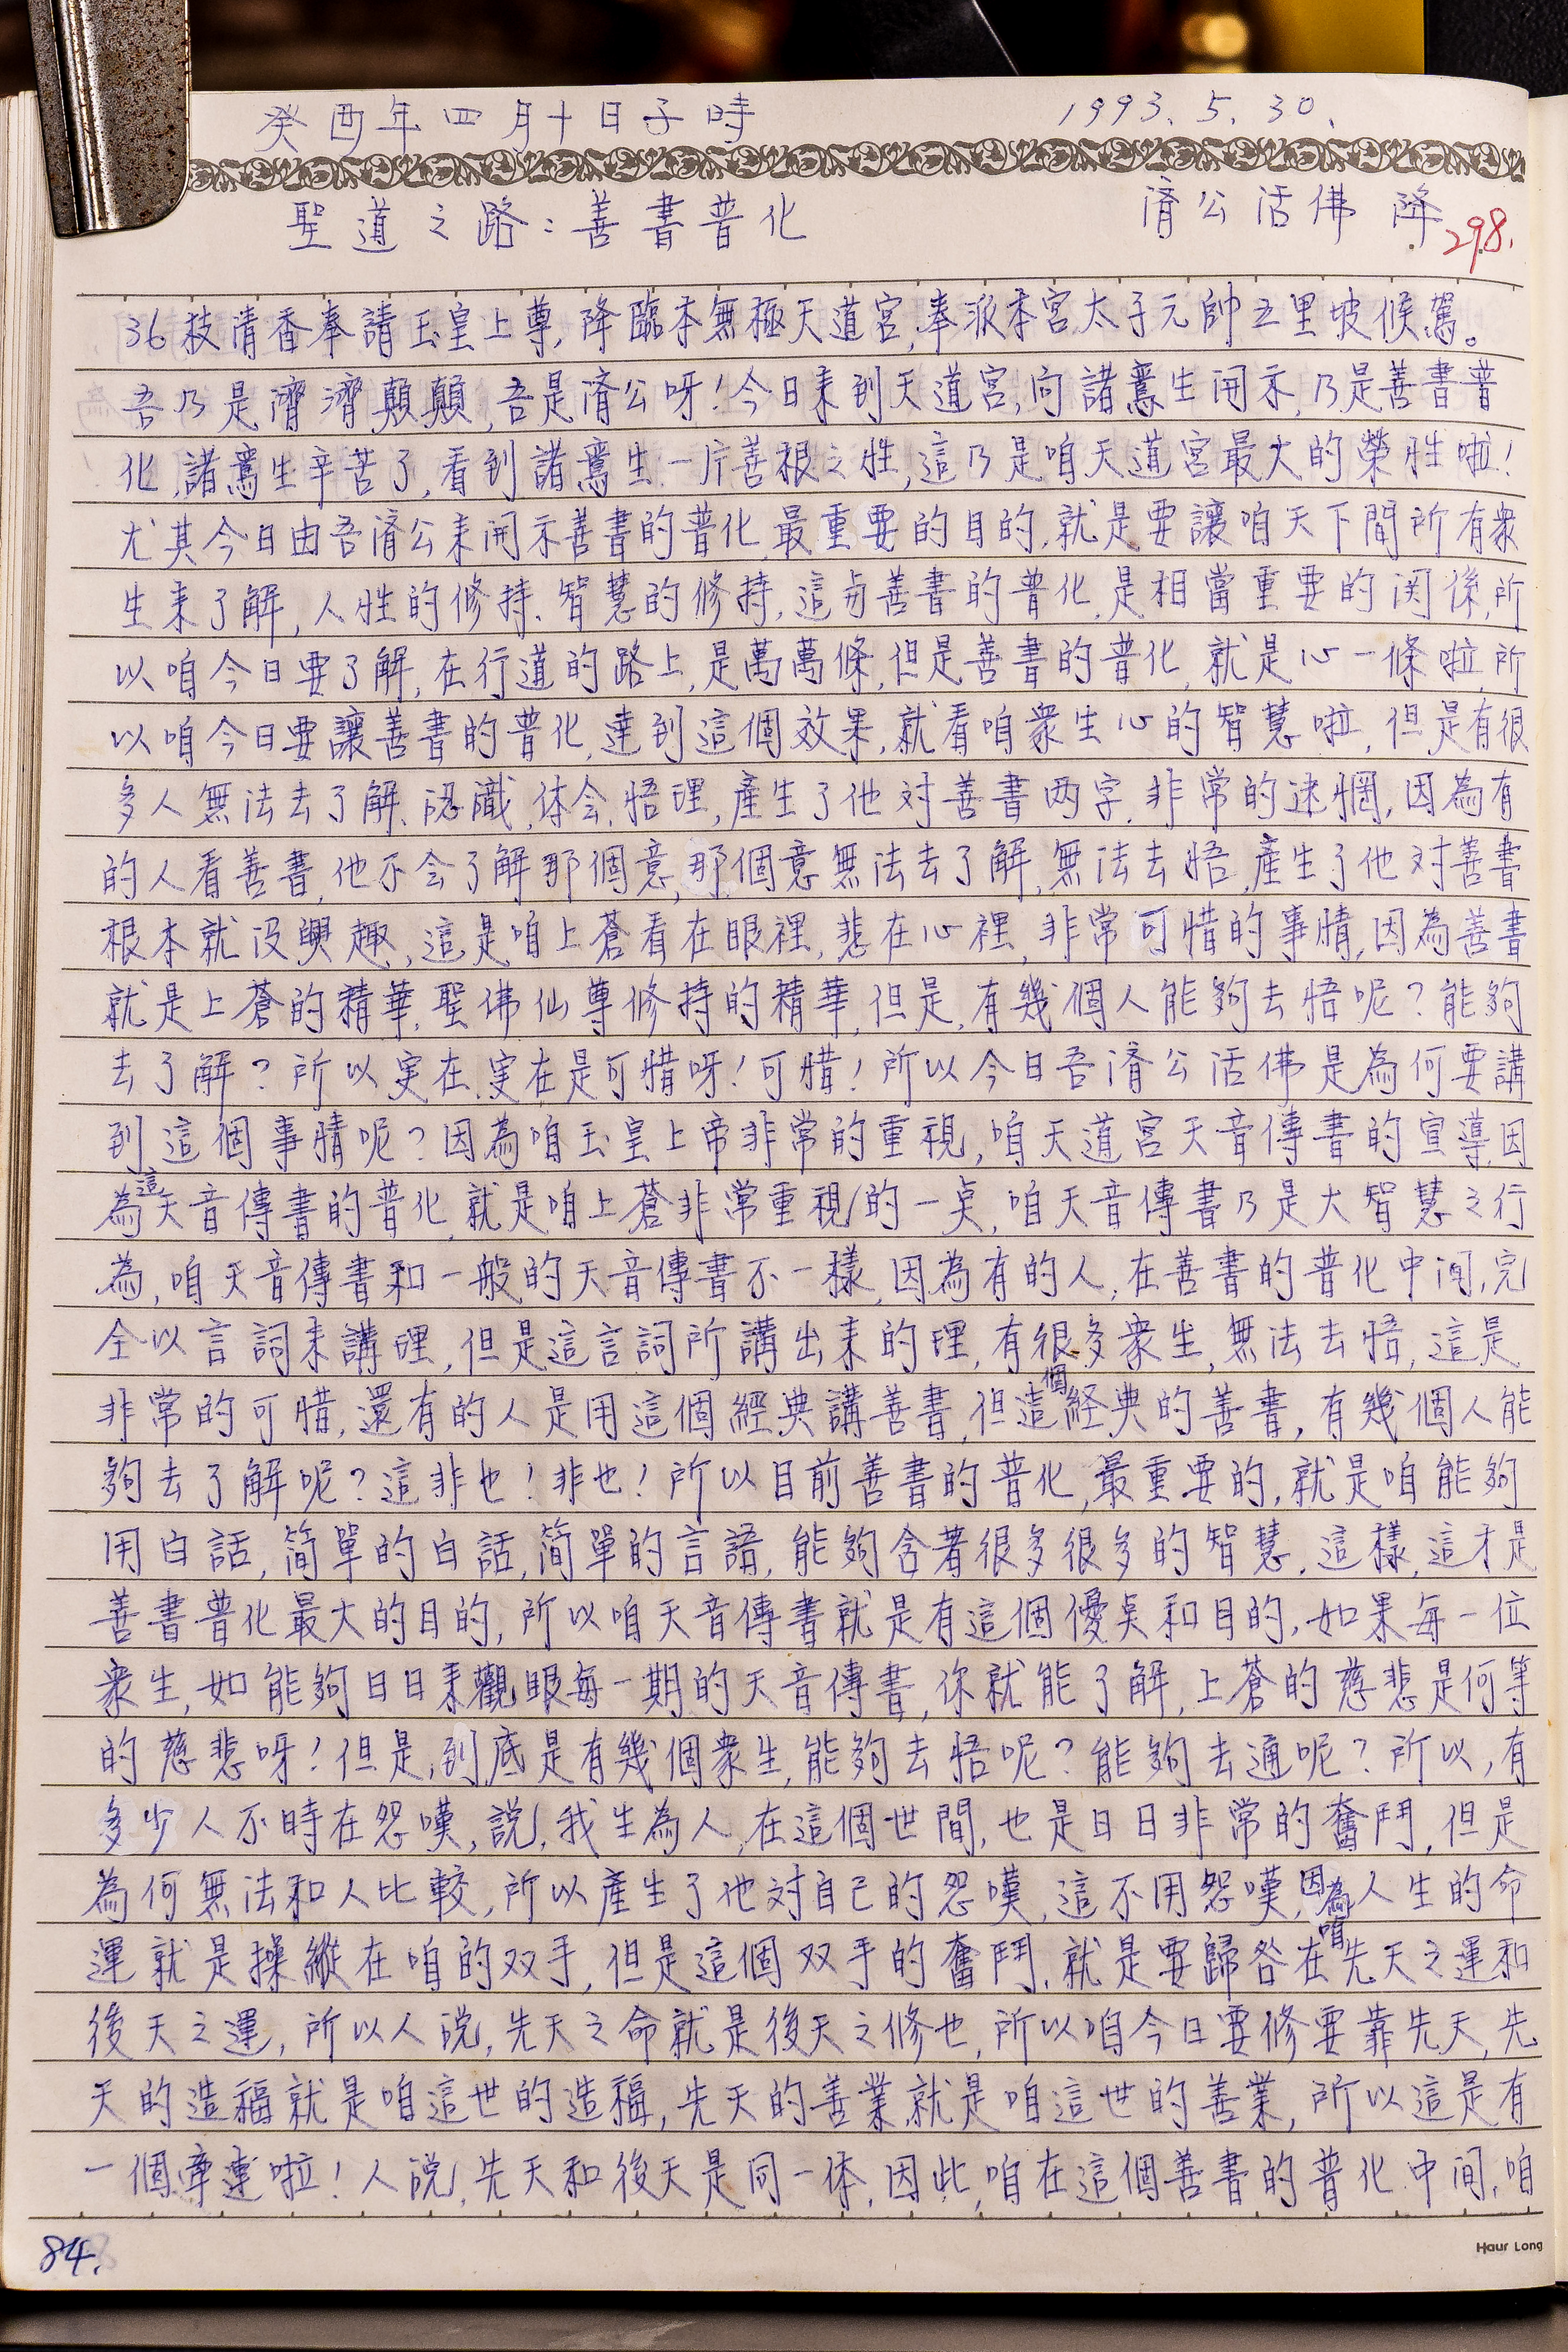 癸酉年四月十日子時 1993. 5. 30.
聖道之路:善書普化 濟公活佛 降 298.
36枝清香奉請玉皇上尊,降臨本無極天道宮,奉派本宮太子元帥五里坡候駕。
吾乃是濟濟顛顛,吾是濟公呀!今日來到天道宮,向諸鸞生開示,乃是善書普
化,諸鸞生辛苦了,看到諸鸞生一片善根之性,這乃是咱天道宮最大的榮性啦!
尤其今日由吾濟公來開示善書的普化,最重要的目的,就是要讓咱天下間所有衆
生來了解,人性的修持、智慧的修持,這与善書的普化,是相當重要的関係,所
以咱今日要了解,在行道的路上,是萬萬條,但是善書的普化,就是心一條啦,所
以咱今日要讓善書的普化,達到這個效果,就看咱衆生心的智慧啦,但是有很
多人無法去了解、認識、体会、悟理,產生了他对善書两字,非常的迷惘,因為有
的人看善書,他不会了解那個意,那個意無法去了解,無法去悟,產生了他对善書
根本就没興趣,這是咱上蒼看在眼裡,悲在心裡,非常可惜的事情,因為善書
就是上蒼的精華,聖佛仙尊修持的精華,但是,有幾個人能夠去悟呢?能夠
去了解?所以実在,実在是可惜呀!可惜!所以今日吾濟公活佛是為何要講
到這個事情呢?因為咱玉皇上帝非常的重視,咱天道宮天音傳書的宣導,因
為這天音傳書的普化,就是咱上蒼非常重視的一奌,咱天音傳書乃是大智慧之行
為,咱天音傳書和一般的天音傳書不一樣,因為有的人,在善書的普化中间,完
全以言詞來講理,但是這言詞所講出來的理,有很多衆生,無法去悟,這是
非常的可惜,還有的人是用這個經典講善書,但這個経典的善書,有幾個人能
夠去了解呢?這非也!非也!所以目前善書的普化,最重要的,就是咱能夠
用白話,简單的白話,简單的言語,能夠含著很多很多的智慧,這樣,這才是
善書普化最大的目的,所以咱天音傳書就是有這個優奌和目的,如果每一位
衆生,如能夠日日來觀眼每一期的天音傳書,你就能了解,上蒼的慈悲是何等
的慈悲呀!但是,到底是有幾個衆生,能夠去悟呢?能夠去通呢?所以,有
多少人不時在怨嘆,説,我生為人,在這個世間,也是日日非常的奮鬥,但是
為何無法和人比較,所以產生了他对自己的怨嘆,這不用怨嘆,因為咱人生的命
運就是操縱在咱的双手,但是這個双手的奮鬥,就是要歸咎在先天之運和
後天之運,所以人說,先天之命就是後天之修也,所以咱今日要修要靠先天,先
天的造福就是咱這世的造福,先天的善業就是咱這世的善業,所以這是有
一個牽連啦!人說,先天和後天是同一体,因此,咱在這個善書的普化中间,咱
84.
Haur Long